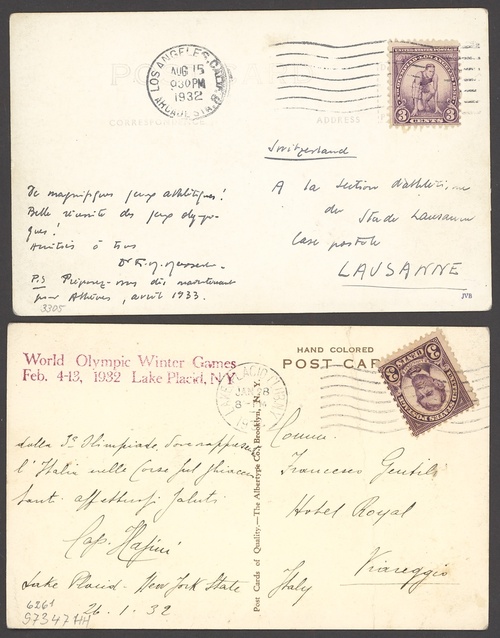 LOS ANGELES, CALIF.
AUG 15
9 30 PM
1932
ARCADE STA.
UNITED STATES POSTAGE
3 CENTS 3
CORRESPONDENCE
ADDRESS
Switzerland
De magnifiques jeux athlétiques!
Belle réussite des jeux olympi-
ques!
Amitiés à tous
Dr F. M. Messerli
P.S. Préparez-vous dès maintenant
pour Athènes, avril 1933.
3305
A la Section d'athlétisme
du Stade Lausanne
Case postale
LAUSANNE
JVB
World Olympic Winter Games
Feb. 4-13, 1932 Lake Placid, N.Y.
LAKE PLACID CLUB
JAN 28
8
HAND COLORED
POST CARD
UNITED STATES POSTAGE
3 CENTS 3
dalla 3a Olimpiade, dove rappresento
l'Italia nelle Corse sul ghiaccio
tanti affettuosi saluti
Cap.
Lake Placid - New York State
26.1.32
6261
97347HH
Post Cards of Quality.—The Albertype Co., Brooklyn, N. Y.
Francesco Gentili
Hotel Royal
Viareggio
Italy